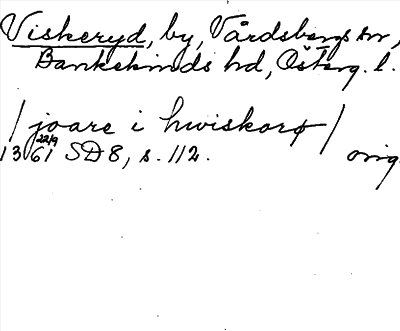 Viskeryd, by, Vårdsbergs sn,
Bankekinds hd, Österg. l.
/ joare i hwiskorø /
22/9
1361 SD 8, s. 112. orig.